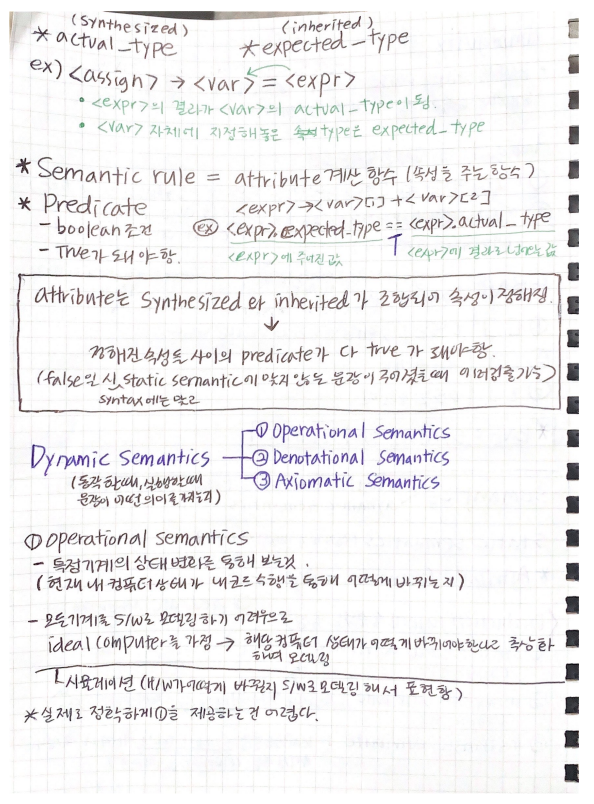 (Synthesized) (inherited)
* actual_type * expected_type
ex) <assign> → <var> = <expr>
• <expr>의 결과가 <var>의 actual_type이 됨.
• <var> 자체에 지정해놓은 type은 expected_type
* Semantic rule = attribute 계산 함수 (속성을 주는 함수)
* Predicate <expr> → <var>[1] + <var>[2]
- boolean 조건 ex <expr>.expected_type == <expr>.actual_type
- True가 돼야함. <expr>에 주어진 값 <expr>에 결과로 값
attribute는 Synthesized 와 inherited 가 조합되어 속성이 정해짐.
↓
정해진 속성들 사이의 predicate가 다 true 가 돼야함.
(false일 시, static semantic에 맞지 않는 문장이 주어졌을때 에러검출가능)
syntax에는 맞고
Dynamic Semantics
① Operational Semantics
② Denotational Semantics
③ Axiomatic Semantics
(동작할때, 실행할때
문장이 어떤 의미를 )
① Operational Semantics
- 특정기계의 상태변화를 통해 보는것.
(현재 내 컴퓨터 상태가 내 코드 수행을 통해 어떻게 바뀌는지)
- 모든기계를 S/W로 모델링 하기 어려우므로
ideal computer를 가정 → 해당 컴퓨터 상태가 어떻게 바뀌어야한다고 추상화
하며 모델링
시뮬레이션 (H/W가 어떻게 바뀔지 S/W로 모델링 해서 표현함)
* 실제로 정확하게 ①을 제공하는 건 어렵다.